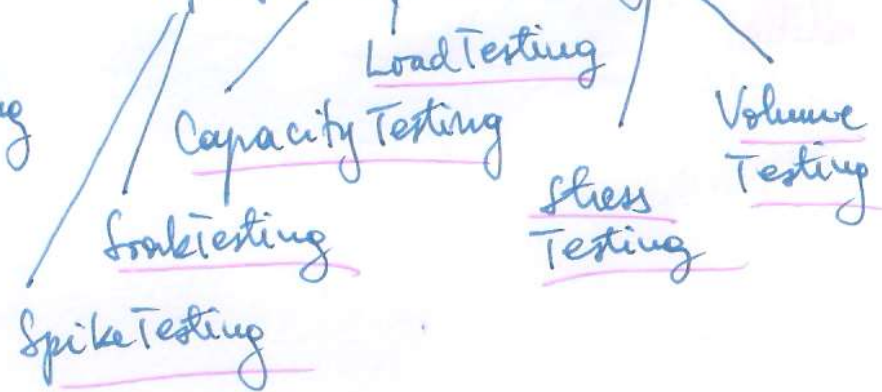 Load Testing
Capacity Testing
Volume
Testing
Stress
Testing
Soak Testing
Spike Testing